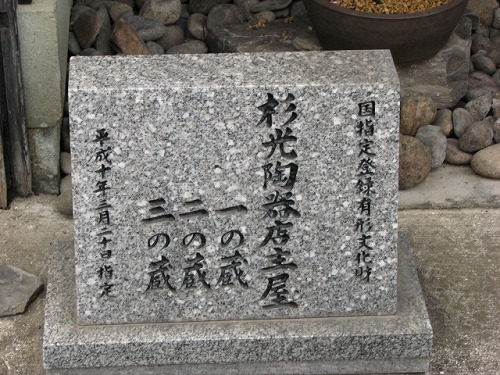 国指定登録有形文化財
杉光陶器店主屋
一の蔵
二の蔵
三の蔵
平成十年三月二十日指定